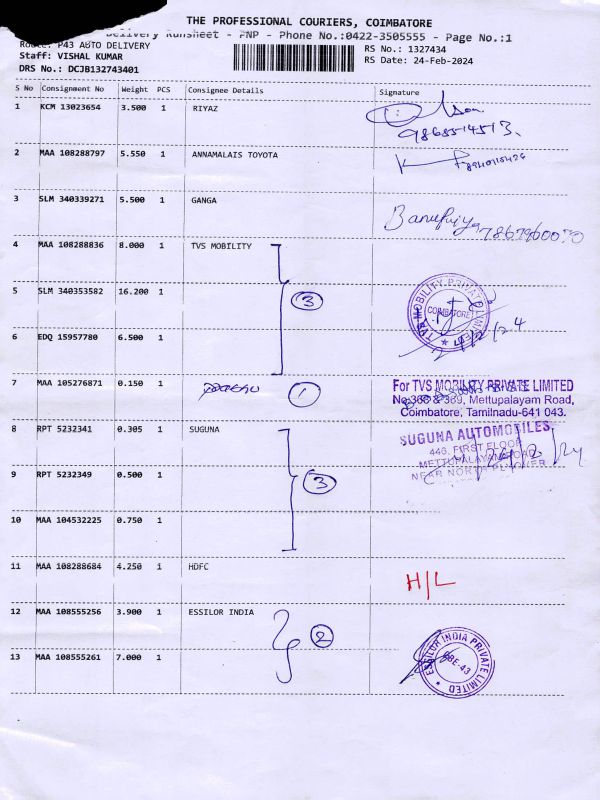 THE PROFESSIONAL COURIERS, COIMBATORE
Delivery Runsheet - PNP - Phone No.:0422-3505555 - Page No.:1
Route: P43 AUTO DELIVERY
RS No.: 1327434
Staff: VISHAL KUMAR
RS Date: 24-Feb-2024
DRS No.: DCJB132743401
S No Consignment No Weight PCS Consignee Details Signature
1 KCM 13023654 3.500 1 RIYAZ
2 MAA 108288797 5.550 1 ANNAMALAIS TOYOTA
3 SLM 340339271 5.500 1 GANGA
Banupriya
4 MAA 108288836 8.000 1 TVS MOBILITY
5 SLM 340353582 16.200 1
3
TVS MOBILITY PRIVATE LIMITED
COIMBATORE
6 EDQ 15957780 6.500 1
7 MAA 105276871 0.150 1
1
For TVS MOBILITY PRIVATE LIMITED
No.368 & 369, Mettupalayam Road,
Coimbatore, Tamilnadu-641 043.
8 RPT 5232341 0.305 1 SUGUNA
SUGUNA AUTOMOBILES,
446, FIRST FLOOR
METTUPALAYAM ROAD
NEAR NORTH FLYOVER
9 RPT 5232349 0.500 1
3
10 MAA 104532225 0.750 1
11 MAA 108288684 4.250 1 HDFC
H/L
12 MAA 108555256 3.900 1 ESSILOR INDIA
2
13 MAA 108555261 7.000 1
ESSILOR INDIA PRIVATE LIMITED
CBE-43